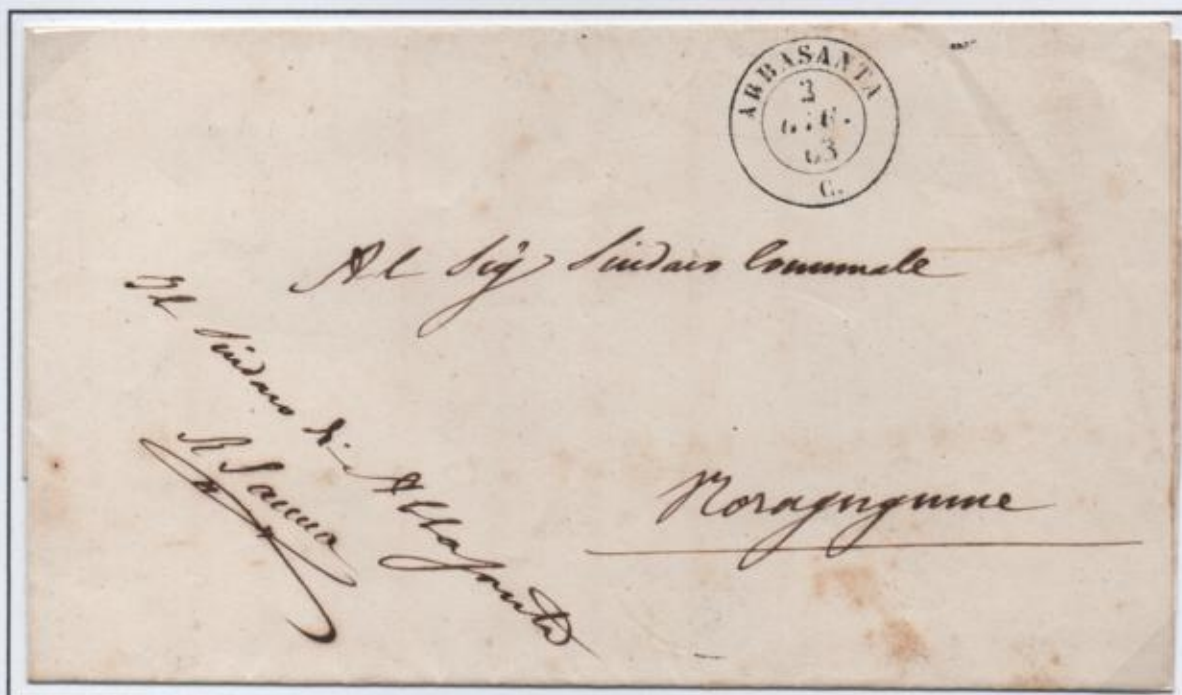 ABBASANTA
2
GIU.
63
C.
Al Sigr Sindaco Comunale
Il Sindaco di Abbasanta
R Sanna
Noragugume